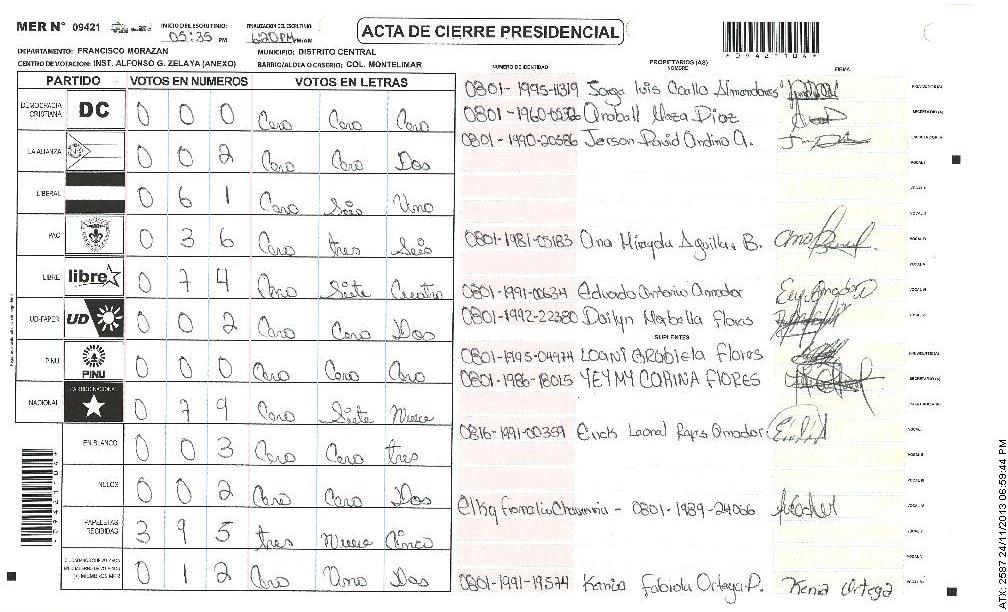 MER N° 09421 INICIO DEL ESCRUTINIO: 05:35 PM FINALIZACION DEL ESCRUTINIO: 6:20 PM PM/AM
ACTA DE CIERRE PRESIDENCIAL
*09421104*
DEPARTAMENTO: FRANCISCO MORAZAN MUNICIPIO: DISTRITO CENTRAL
CENTRO DE VOTACION: INST. ALFONSO G. ZELAYA (ANEXO) BARRIO/ALDEA O CASERIO: COL. MONTELIMAR
NUMERO DE IDENTIDAD PROPIETARIOS (AS) NOMBRE FIRMA
PARTIDO VOTOS EN NUMEROS VOTOS EN LETRAS
DEMOCRACIA CRISTIANA DC 0 0 0 Cero Cero Cero
LA ALIANZA 0 0 2 Cero Cero Dos
LIBERAL 0 6 1 Cero Seis Uno
PAC 0 3 6 Cero tres Seis
LIBRE libre 0 7 4 Cero Siete Cuatro
UD-FAPER UD 0 0 2 Cero Cero Dos
PINU PINU 0 0 0 Cero Cero Cero
NACIONAL PARTIDO NACIONAL 0 7 9 Cero Siete Nueve
EN BLANCO 0 0 3 Cero Cero tres
NULOS 0 0 2 Cero Cero Dos
PAPELETAS RECIBIDAS 3 9 5 tres Nueve Cinco
0 1 2 Cero Uno Dos
0801-1995-11319 Jorge Luis Coello Almendares PRESIDENTE(A)
0801-1960 Diaz SECRETARIO(A)
0801-1990-20586 Jerson David Ondino A. ESCRUTADOR(A)
VOCAL I
VOCAL II
0801-1981-05183 Ana Mirayda Aguilar B.
0801-1991-00634 Eduardo Antonio Amador
0801-1992-22380 Dailyn Marbella Flores
SUPLENTES
0801-1995-04974 LOANI GRabiela Flores PRESIDENTE(A)
0801-1986-18015 YEYMY CORINA FLORES SECRETARIO(A)
0816-1991-00359 Erick Leonel Reyes Amador VOCAL I
0801-1989-24066
0801-1991-19574 Kenia Fabiola Ortega P. Kenia Ortega
ATX: 2587 24/11/2013 06:59:44 PM